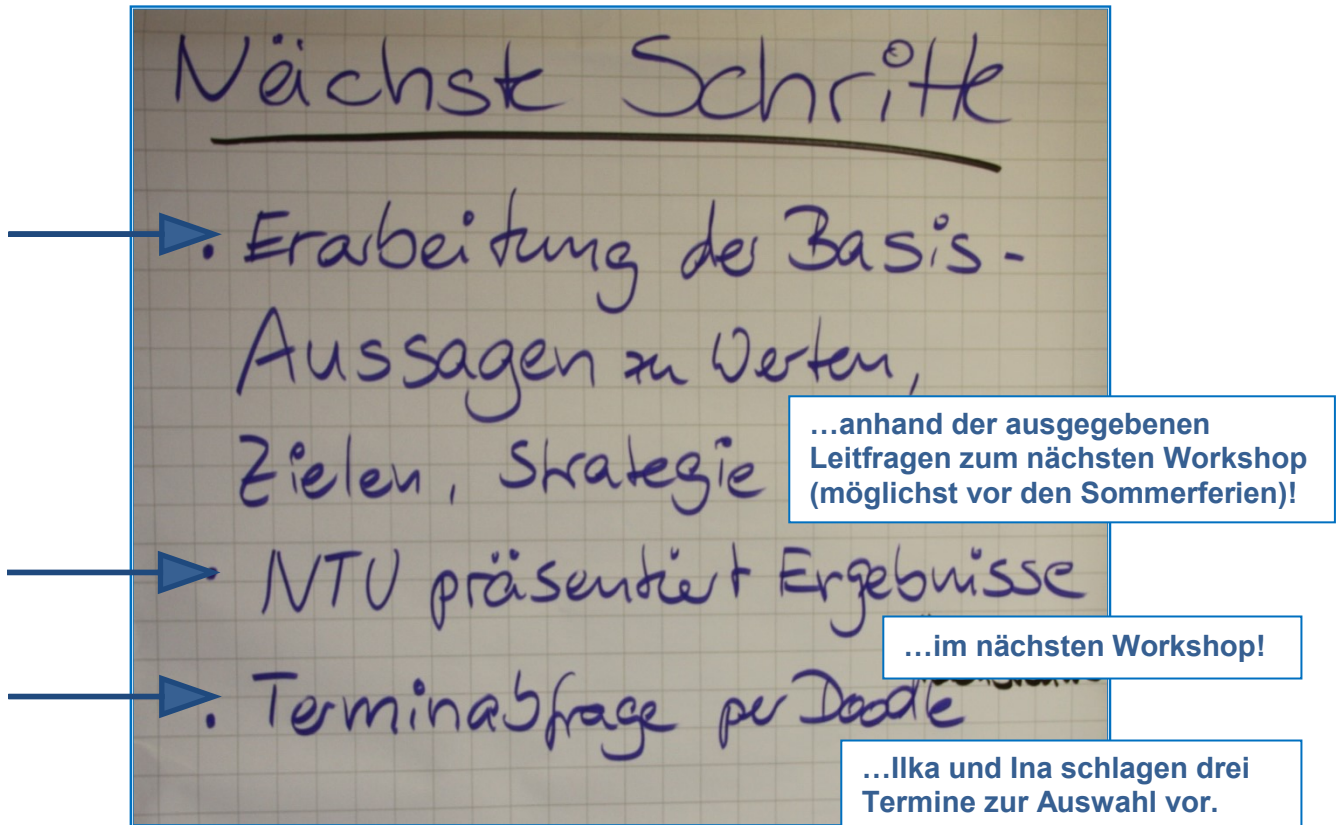 Nächste Schritte
• Erarbeitung der Basis-
Aussagen zu Werten,
Zielen, Strategie
…anhand der ausgegebenen
Leitfragen zum nächsten Workshop
(möglichst vor den Sommerferien)!
• NTU präsentiert Ergebnisse
…im nächsten Workshop!
• Terminabfrage per Doodle
…Ilka und Ina schlagen drei
Termine zur Auswahl vor.